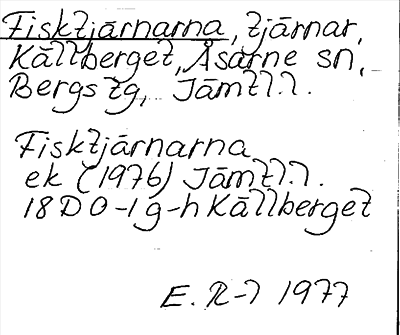 Fisktjärnarna, tjärnar,
Källberget, Åsarne sn,
Bergs tg, Jämtl.l.
Fisktjärnarna
ek (1976) Jämtl.l.
18D 0-1g-h Källberget
E. R-l 1977